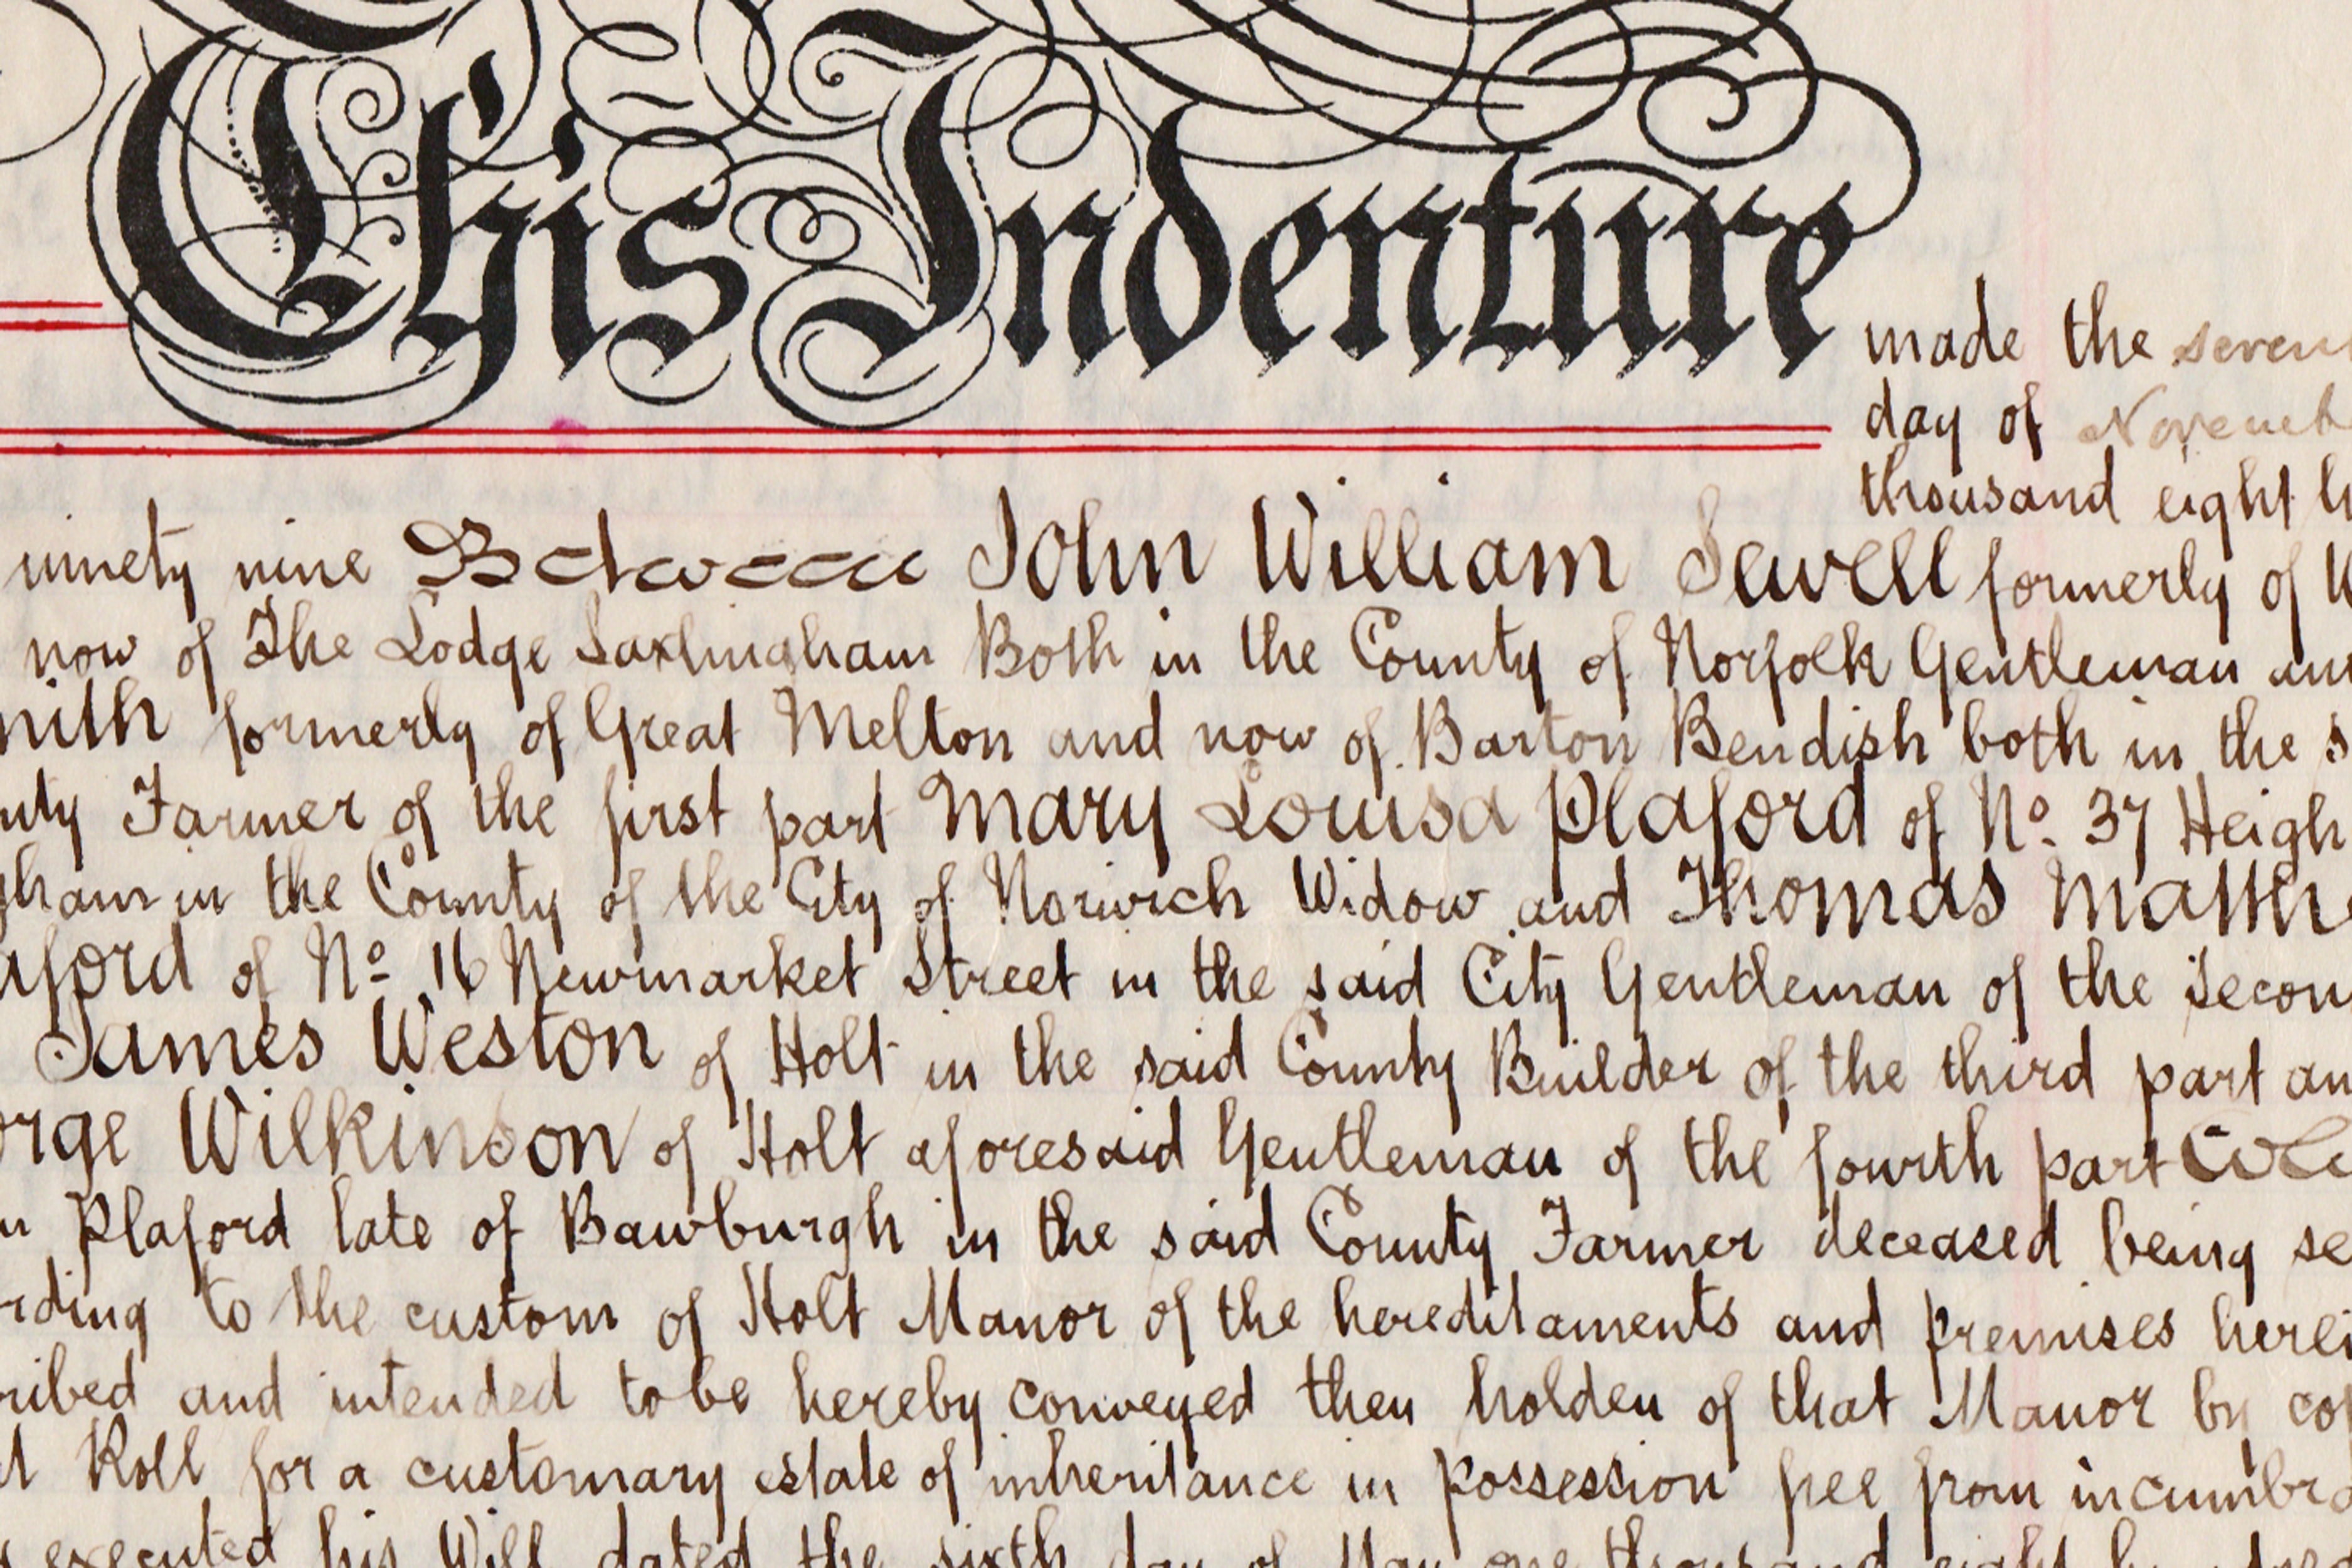 This Indenture
made the seven
day of Novemb
thousand eight h
ninety nine Between John William Sewell formerly of W
now of The Lodge Saxlingham Both in the County of Norfolk Gentleman an
mith formerly of Great Melton and now of Barton Bendish both in the s
nty Farmer of the first part Mary Louisa Plaford of No. 37 Heigh
gham in the County of the City of Norwich Widow and Thomas Matth
aford of No 16 Newmarket Street in the said City Gentleman of the secon
James Weston of Holt in the said County Builder of the third part an
orge Wilkinson of Holt aforesaid Gentleman of the fourth part Whe
n Plaford late of Bawburgh in the said County Farmer deceased being se
rding to the custom of Holt Manor of the hereditaments and premises herei
ribed and intended to be hereby conveyed then holden of that Manor by cop
t Roll for a customary estate of inheritance in possession free from incumbra
executed his Will dated the sixth day of May one thousand eight hundre